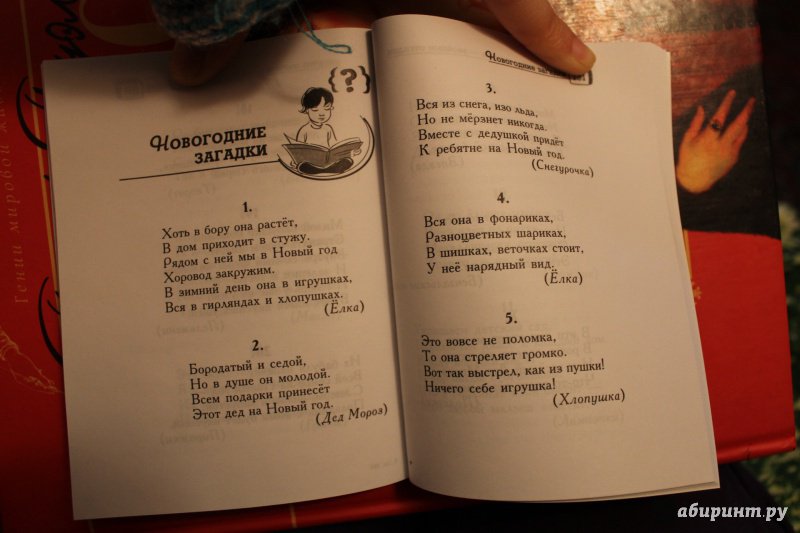 {?}
НОВОГОДНИЕ
ЗАГАДКИ
1.
Хоть в бору она растёт,
В дом приходит в стужу.
Рядом с ней мы в Новый год
Хоровод закружим.
В зимний день она в игрушках,
Вся в гирляндах и хлопушках.
(Ёлка)
2.
Бородатый и седой,
Но в душе он молодой.
Всем подарки принесёт
Этот дед на Новый год.
(Дед Мороз)
Новогодние
3.
Вся из снега, изо льда,
Но не мёрзнет никогда.
Вместе с дедушкой придёт
К ребятне на Новый год.
(Снегурочка)
4.
Вся она в фонариках,
Разноцветных шариках,
В шишках, веточках стоит,
У неё нарядный вид.
(Ёлка)
5.
Это вовсе не поломка,
То она стреляет громко.
Вот так выстрел, как из пушки!
Ничего себе игрушка!
(Хлопушка)
Гении мировой
абиринт.ру